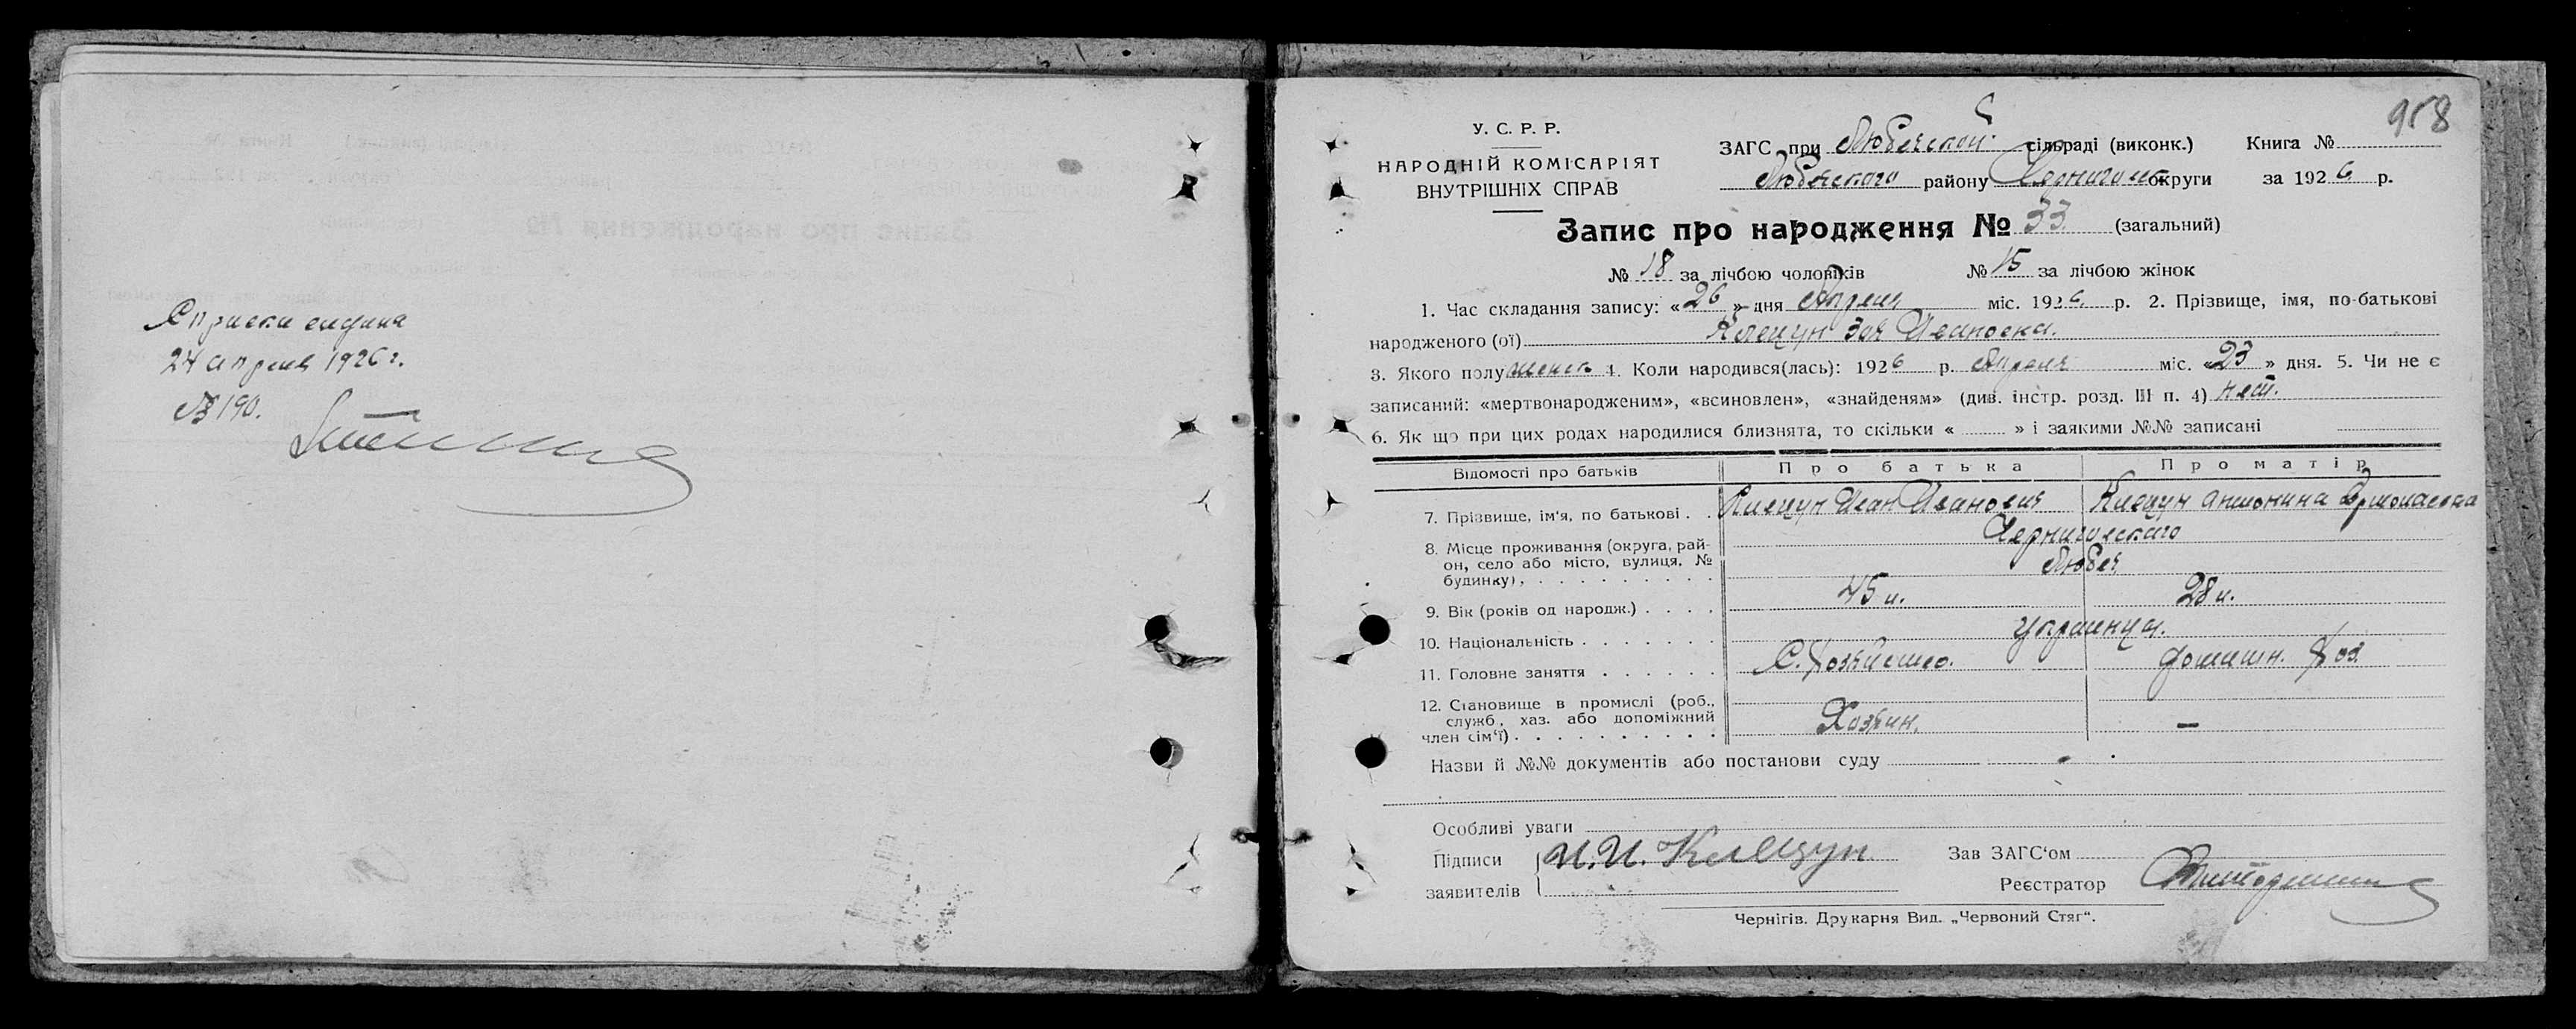 Справка выдана
24 апреля 1926 г.
№ 190.
958
У. С. Р. Р.
НАРОДНІЙ КОМІСАРІЯТ
ВНУТРІШНІХ СПРАВ
ЗАГС при Любечской сільраді (виконк.) Книга №
Любечского району Чернигов округи за 1926 р.
Запис про народження № 33 (загальний)
№ 18 за лічбою чоловіків № 15 за лічбою жінок
1. Час складання запису: «26» дня Апреля міс. 1926 р. 2. Прізвище, імя, по-батькові
народженого (ої) Клецун Зоя Ивановна.
3. Якого полу женск 4. Коли народився(лась): 1926 р. Апреля міс. «23» дня. 5. Чи не є
записаний: «мертвонародженим», «всиновлен», «знайденям» (див. інстр. розд. III п. 4) нет.
6. Як що при цих родах народилися близнята, то скільки « » і заякими №№ записані
Відомості про батьків Про батька Про матір
7. Прізвище, ім'я, по батькові . . Клецун Иван Иванович Клецун Антонина
8. Місце проживання (округа, рай- Черниговского
он, село або місто, вулиця, № Любеч
будинку) . . . . . . . . . .
9. Вік (років од народж.) . . . . 45 л. 28 л.
10. Національність . . . . . . . украинцы.
11. Головне заняття . . . . . . С. Хозяйство. домашн. Хоз.
12. Становище в промислі (роб.,
служб., хаз. або допоміжний Хозяин. —
член сім'ї) . . . . . . . . . .
Назви й №№ документів або постанови суду -
Особливі уваги
Підписи И. И. Клецун Зав ЗАГС'ом
заявителів Реєстратор
Чернігів. Друкарня Вид. „Червоний Стяг“.